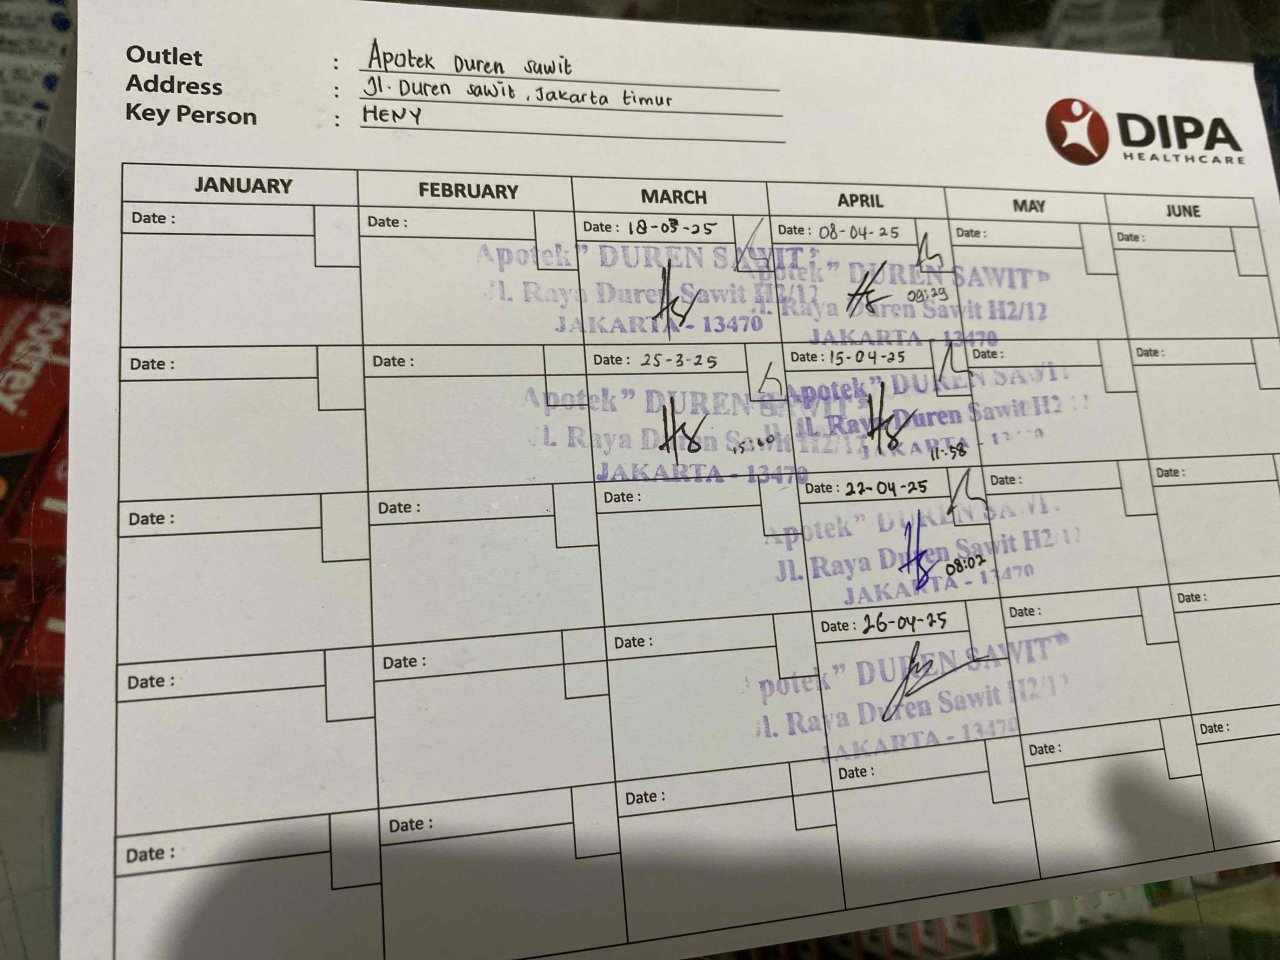 Outlet : Apotek Duren sawit
Address : Jl. Duren sawit, Jakarta timur
Key Person : HENY
DIPA
HEALTHCARE
JANUARY FEBRUARY MARCH APRIL MAY JUNE
Date : Date : Date : 18-03-25 Date : 08-04-25 Date : Date :
Apotek" DUREN SAWIT"
Jl. Raya Duren Sawit H2/12
JAKARTA - 13470
Apotek" DUREN SAWIT"
Jl. Raya Duren Sawit H2/12
JAKARTA - 13470
09:29
Date : Date : Date : 25-3-25 Date : 15-04-25 Date : Date :
Apotek" DUREN SAWIT"
Jl. Raya Duren Sawit H2/12
JAKARTA - 13470
Apotek" DUREN SAWI
Jl. Raya Duren Sawit H2 12
JAKARTA -
11.58
Date : Date : Date : Date : 22-04-25 Date : Date :
Apotek" DUREN SAWI
Jl. Raya Duren Sawit H2/12
JAKARTA - 13470
08:02
Date : Date : Date : Date : 26-04-25 Date : Date :
potek" DUREN SAWIT"
Jl. Raya Duren Sawit H2/12
JAKARTA - 13470
Date : Date : Date : Date : Date : Date :
bodrex